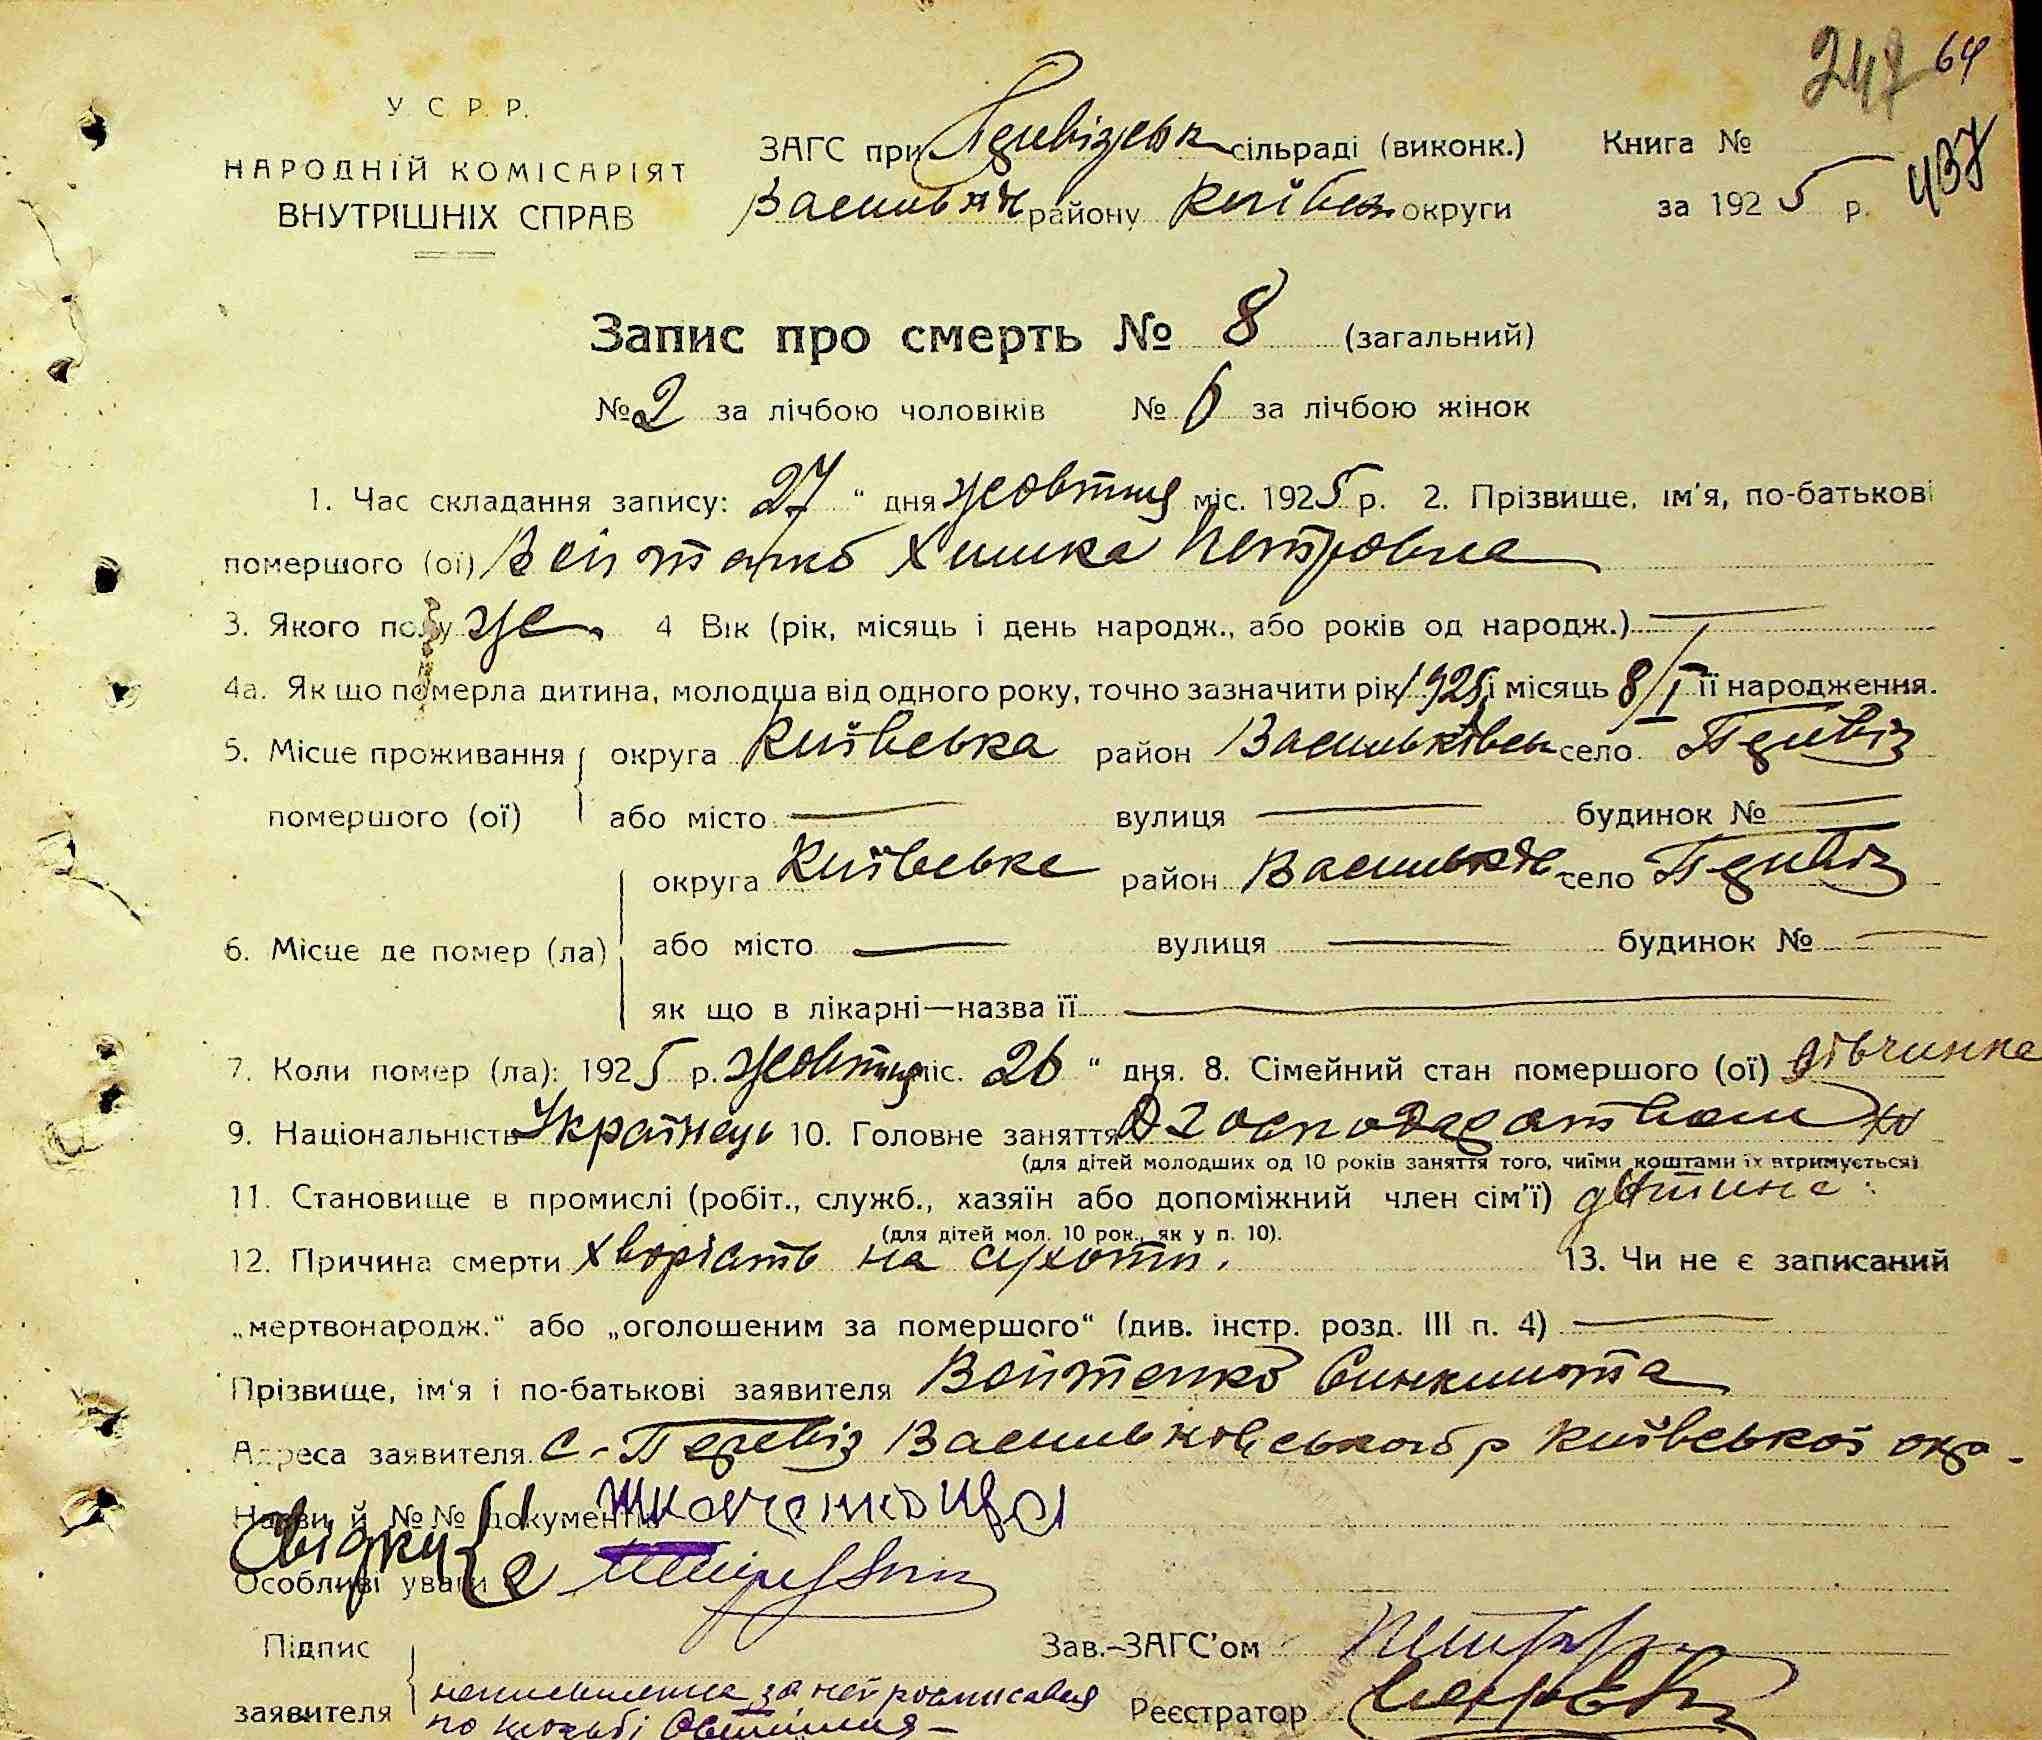 247 64
437
У. С. Р. Р.
НАРОДНІЙ КОМІСАРІЯТ
ВНУТРІШНІХ СПРАВ
ЗАГС при сільраді (виконк.) Книга №
Васильк району Київськ округи за 1925 р.
Запис про смерть № 8 (загальний)
№ 2 за лічбою чоловіків № 6 за лічбою жінок
1. Час складання запису: 27 " дня жовтня міс. 1925 р. 2. Прізвище, ім'я, по-батькові
помершого (ої) Войтенко Химка Петровна
3. Якого полу же. 4 Вік (рік, місяць і день народж., або років од народж.) —
4а. Як що померла дитина, молодша від одного року, точно зазначити рік 1925 і місяць 8/I її народження.
5. Місце проживання округа Київська район Васильківськ село Перевіз
помершого (ої) або місто — вулиця — будинок № —
округа Київське район Васильків село Перевіз
6. Місце де помер (ла) або місто — вулиця — будинок № —
як що в лікарні—назва її —
7. Коли помер (ла): 1925 р. жовтня міс. 26 " дня. 8. Сімейний стан помершого (ої) дівчинка
9. Національність Українець 10. Головне заняття господарством
(для дітей молодших од 10 років заняття того, чиїми коштами їх втримується)
11. Становище в промислі (робіт., служб., хазяїн або допоміжний член сім'ї) дитина
(для дітей мол. 10 рок., як у п. 10).
12. Причина смерти хворість на сухоти. 13. Чи не є записаний
„мертвонародж." або „оголошеним за помершого" (див. інстр. розд. III п. 4) —
Прізвище, ім'я і по-батькові заявителя Войтенко
Адреса заявителя с. Перевіз Васильковського р Київської окр.
Назви й №№ документів
Свідки 1 2
Особливі уваги
Підпис Зав.-ЗАГС'ом
заявителя неписьменна за неї росписався Реєстратор
по